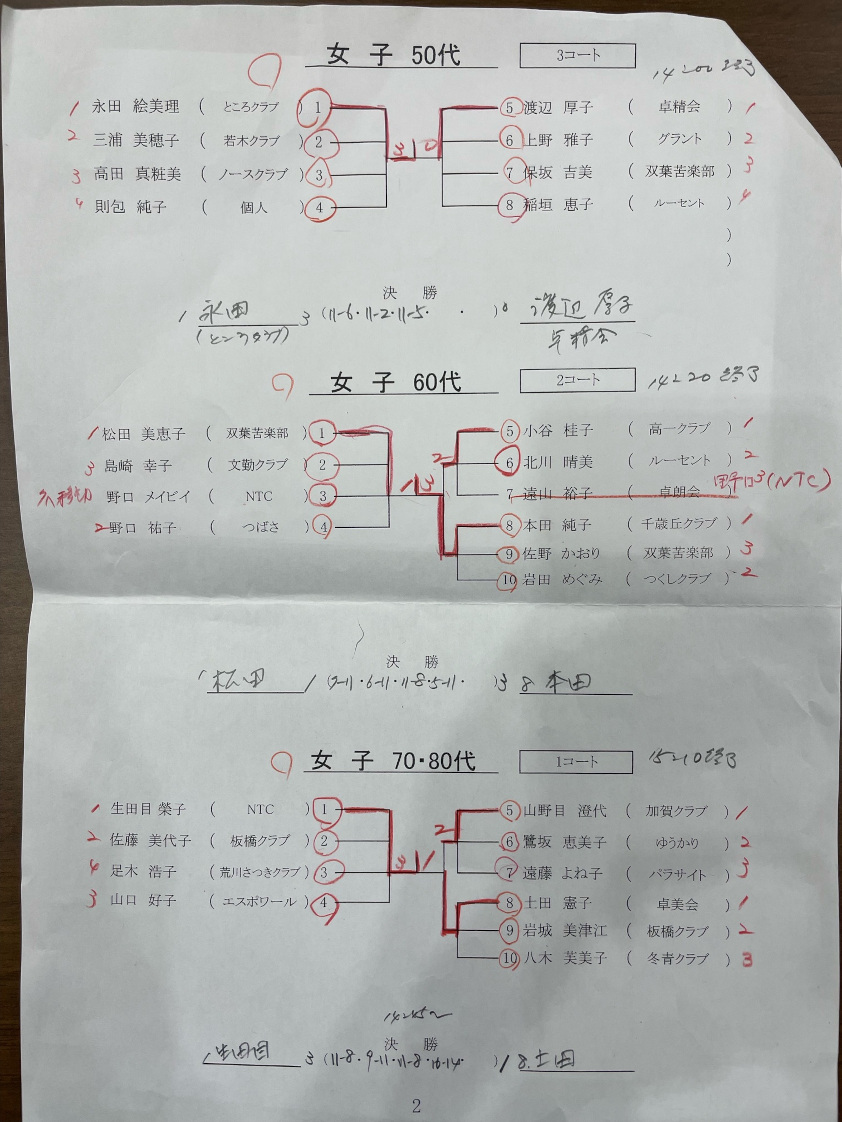 女 子 50代 3コート 14:00 終了
1 永田 絵美理 ( ところクラブ ) 1 ⑤ 渡辺 厚子 ( 卓精会 ) 1
2 三浦 美穂子 ( 若木クラブ ) 2 ⑥ 上野 雅子 ( グラント ) 2
3 高田 真粧美 ( ノースクラブ ) 3 ⑦ 保坂 吉美 ( 双葉苦楽部 ) 3
4 則包 純子 ( 個人 ) 4 ⑧ 稲垣 恵子 ( ルーセント ) 4
3 0
)
)
決 勝
1 永田 3 (11-6・11-2・11-5・ ・ ) 0 渡辺 厚子
(ところクラブ) 卓精会
女 子 60代 2コート 14:20 終了
1 松田 美恵子 ( 双葉苦楽部 ) 1 ⑤ 小谷 桂子 ( 高一クラブ ) 1
3 島崎 幸子 ( 文勤クラブ ) 2 2 ⑥ 北川 晴美 ( ルーセント ) 2
野口 メイビイ ( NTC ) 3 1 3 7 遠山 裕子 ( 卓朗会 ) 野口3(NTC)
2 野口 祐子 ( つばさ ) 4 ⑧ 本田 純子 ( 千歳丘クラブ ) 1
⑨ 佐野 かおり ( 双葉苦楽部 ) 3
⑩ 岩田 めぐみ ( つくしクラブ ) 2
決 勝
1 松田 1 (7-11・6-11・11-8・5-11・ ) 3 8 本田
女 子 70・80代 1コート 15:10終了
1 生田目 榮子 ( NTC ) 1 ⑤ 山野目 澄代 ( 加賀クラブ ) 1
2 佐藤 美代子 ( 板橋クラブ ) 2 2 ⑥ 鷺坂 恵美子 ( ゆうかり ) 2
4 足木 浩子 ( 荒川さつきクラブ ) 3 3 1 ⑦ 遠藤 よね子 ( パラサイト ) 3
3 山口 好子 ( エスポワール ) 4 ⑧ 土田 憲子 ( 卓美会 ) 1
⑨ 岩城 美津江 ( 板橋クラブ ) 2
⑩ 八木 芙美子 ( 冬青クラブ ) 3
14:45〜
決 勝
1 生田目 3 (11-8・9-11・11-8・16-14・ ) 1 8.土田
2